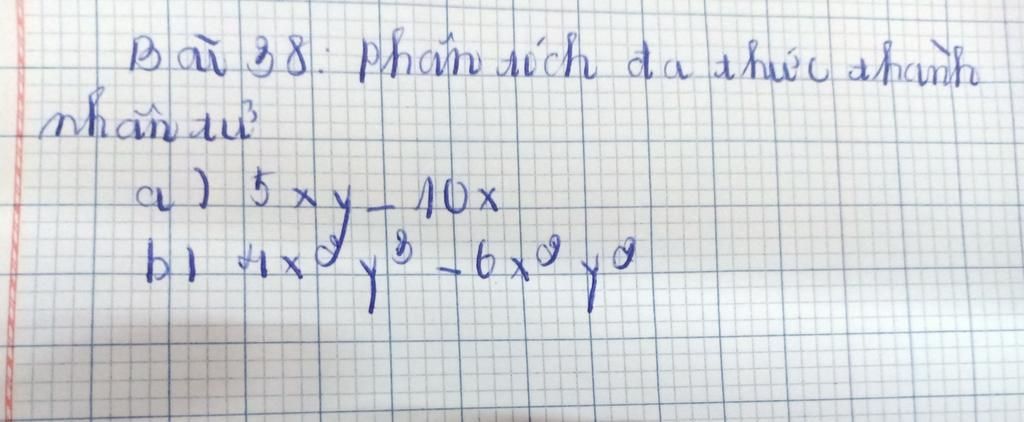 Bài 38: Phân tích đa thức thành
nhân tử
a) 5xy - 10x
b) 4x²y³ - 6x²y²